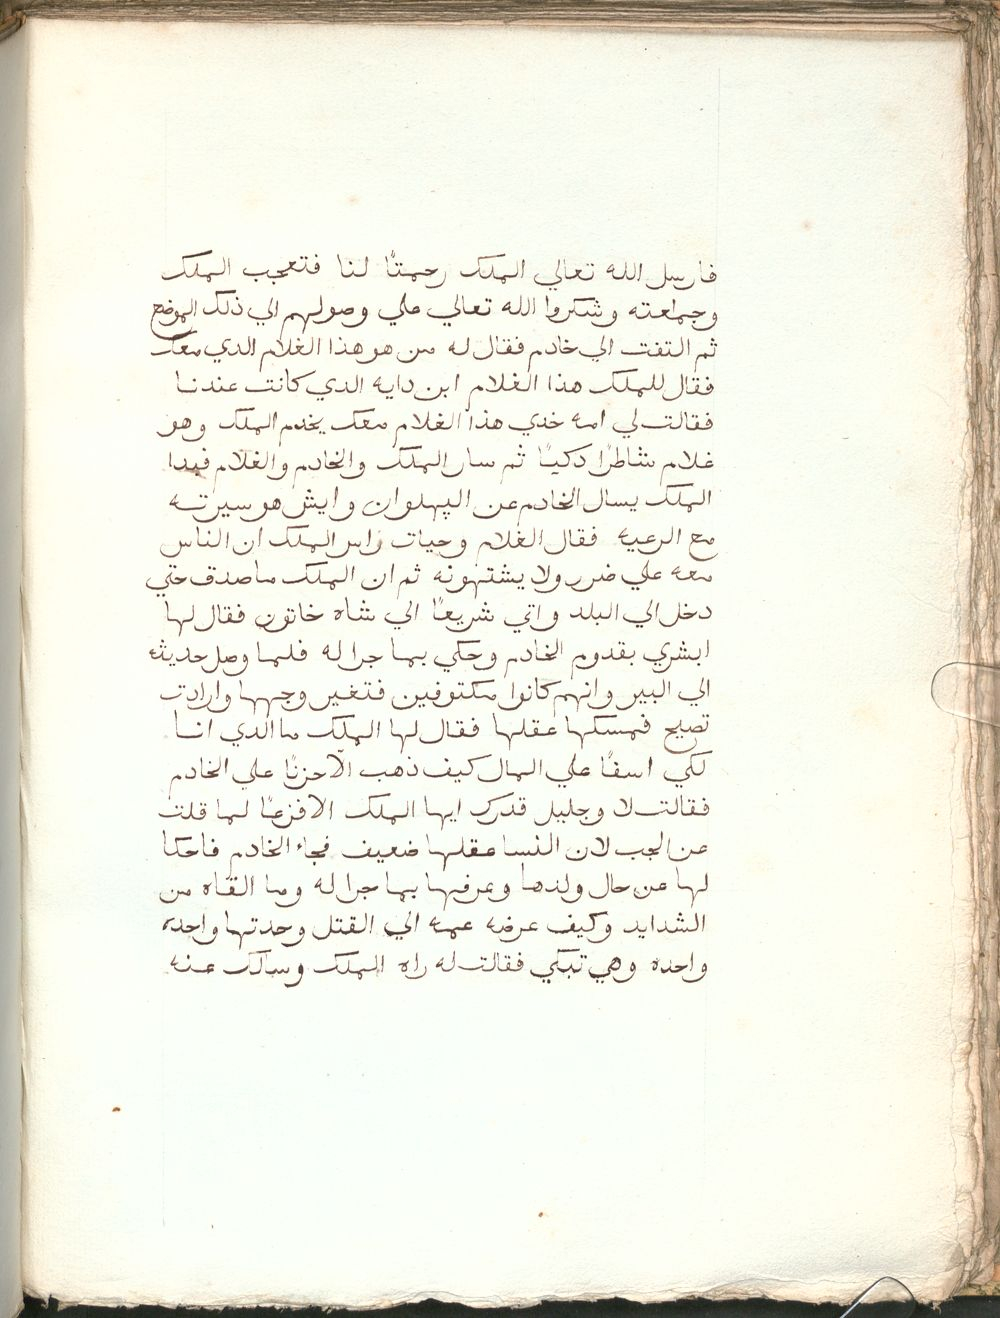 فارسل الله تعالي الملك رحمتًا لنا فتعجب الملك
وجماعته وشكروا الله تعالي علي وصولهم الي ذلك الموضع
ثم التفت الي خادم فقال له من هو هذا الغلام الدي معك
فقال للملك هذا الغلام ابن دايه الدي كانت عندنا
فقالت لي امه خدي هذا الغلام معك يخدم الملك وهو
غلام شاطرًا دكيًا ثم سار الملك والخادم والغلام فبدا
الملك يسال الخادم عن البهلوان وايش هو سيرته
مع الرعيه فقال الغلام وحيات راس الملك ان الناس
معه علي ضرر ولا يشتهونه ثم ان الملك ما صدق حتي
دخل الي البلد واتي شريعًا الي شاه خاتون فقال لها
ابشري بقدوم الخادم وحكي بما جرا له فلما وصل حديثه
الي البير وانهم كانوا مكتوفين فتغير وجهها وارادت
تصيح فمسكها عقلها فقال لها الملك ما الدي انسا
لكي اسفًا علي المال كيف ذهب الّا حزنًا علي الخادم
فقالت لا وجليل قدرك ايها الملك الا فزعًا لما قلت
عن الجب لان النسا عقلها ضعيف فجاء الخادم فاحكا
لها عن حال ولدها وعرفها بما جرا له وما القاه من
الشدايد وكيف عرضه عمه الي القتل وحدتها واحده
واحده وهي تبكي فقالت له راه الملك وسالك عنه